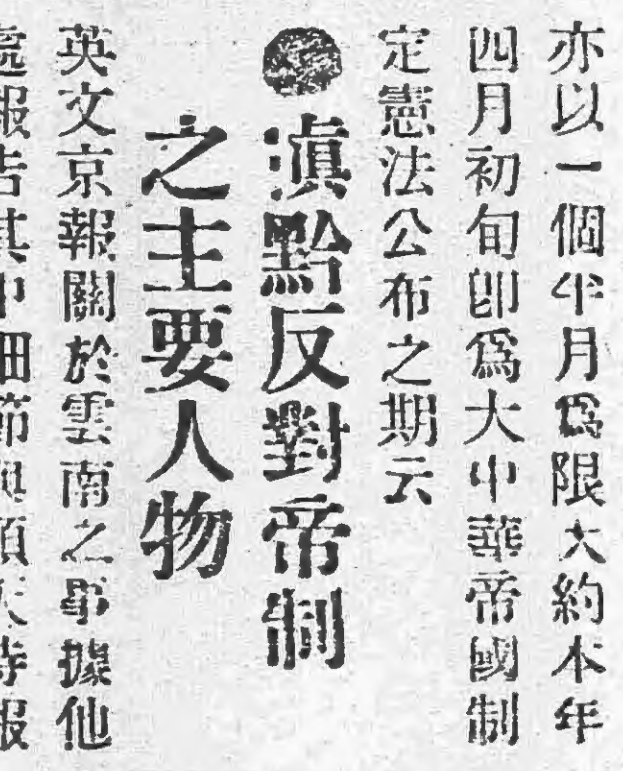 亦以一個半月爲限大約本年
四月初旬卽爲大中華帝國制
定憲法公布之期云
●滇黔反對帝制
之主要人物
英文京報關於雲南之事據他
處報告其中細節與順天時報